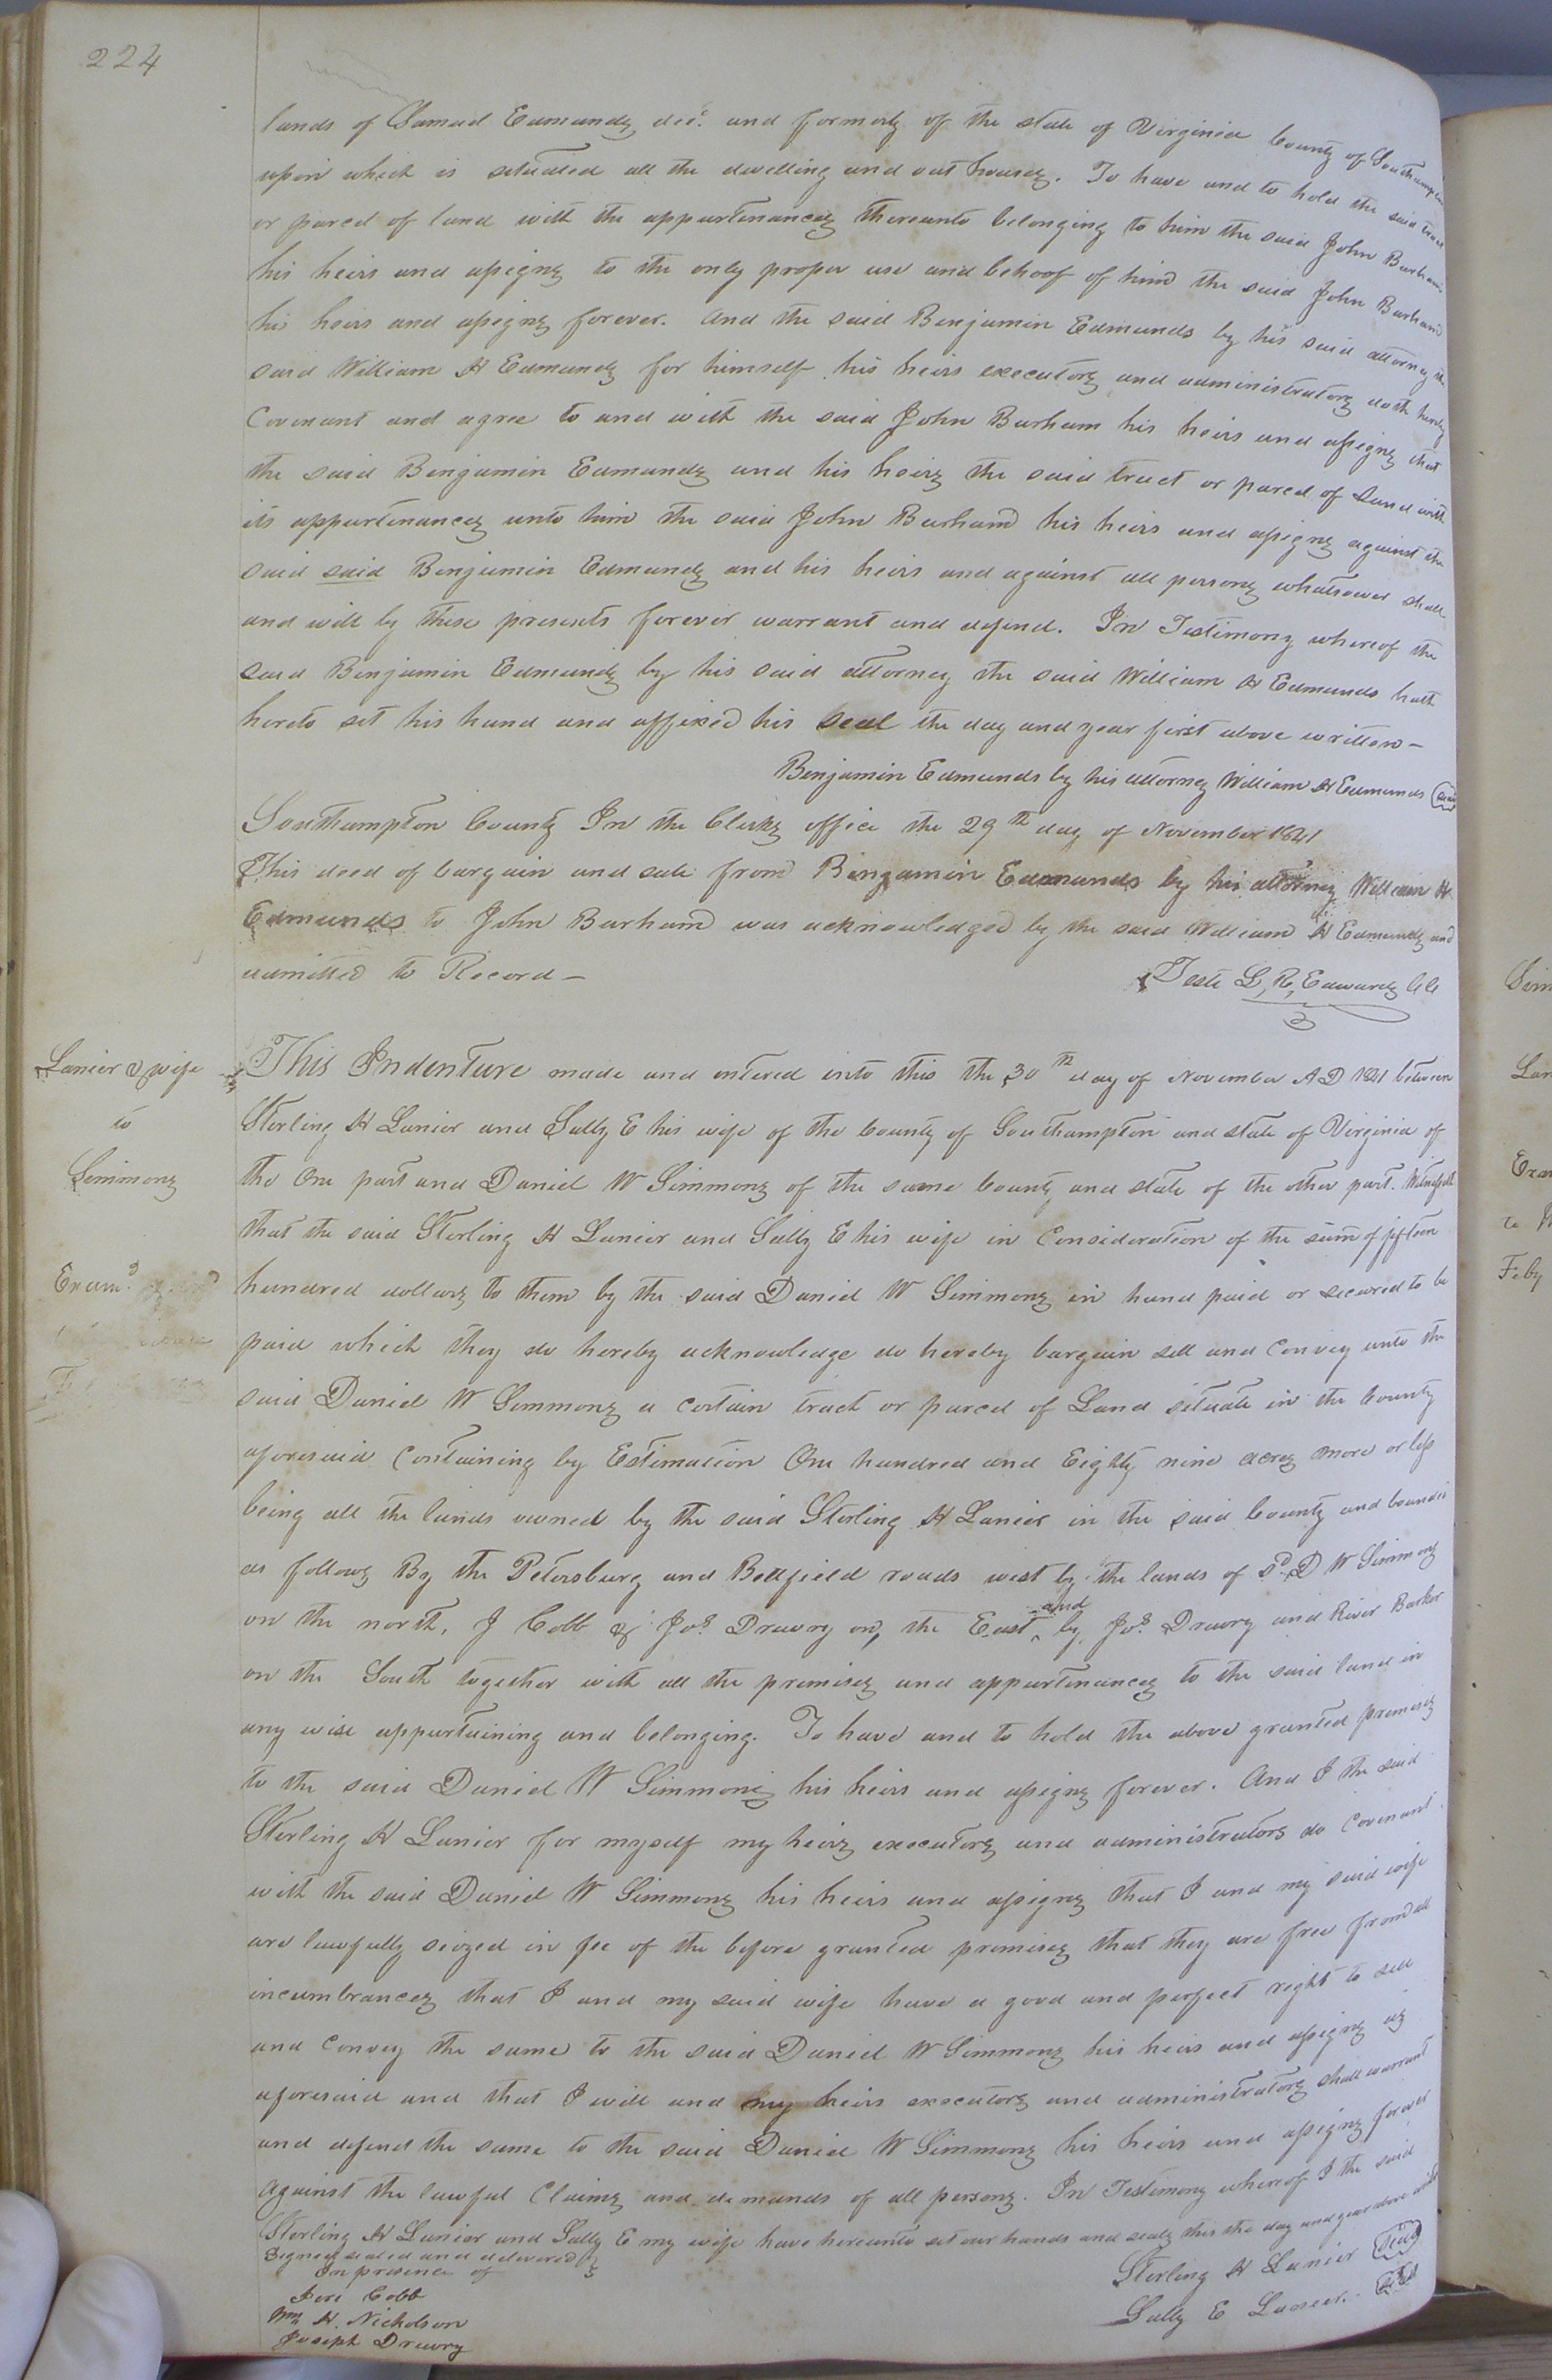 224
lands of Samuel Edmunds decd. and formerly of the state of Virginia County of Southampton
upon which is situated all the dwelling and out houses. To have and to hold the said tract
or parcel of land with the appurtenances thereunto belonging to him the said John Barham
his heirs and assigns to the only proper use and behoof of him the said John Barham
his heirs and assigns forever. And the said Benjamin Edmunds by his said attorney the
said William H Edmunds for himself his heirs executors and administrators doth hereby
Covenant and agree to and with the said John Barham his heirs and assigns that
the said Benjamin Edmunds and his heirs the said tract or parcel of Land with
its appurtenances unto him the said John Barham his heirs and assigns against the
said said Benjamin Edmunds and his heirs and against all persons whatsoever shall
and will by these presents forever warrant and defend. In Testimony whereof the
said Benjamin Edmunds by his said attorney the said William H Edmunds hath
hereto set his hand and affixed his seal the day and year first above written—
Benjamin Edmunds by his attorney William H Edmunds (seal)
Southampton County In the Clerks office the 29th day of November 1841
This deed of bargain and sale from Benjamin Edmunds by his attorney William H
Edmunds to John Barham was acknowledged by the said William H Edmunds and
admitted to Record—
Teste L, R, Edwards CC
Lanier & wife
to
Simmons
Examd.
This Indenture made and entered into this the 30th day of November A D 1841 between
Sterling H Lanier and Sally E his wife of the County of Southampton and state of Virginia of
the One part and Daniel W Simmons of the same County and state of the other part. Witnesseth
that the said Sterling H Lanier and Sally E his wife in Consideration of the sum of fifteen
hundred dollars to them by the said Daniel W Simmons in hand paid or secured to be
paid which they do hereby acknowledge do hereby bargain sell and Convey unto the
said Daniel W Simmons a certain tract or parcel of Land situate in the County
aforesaid Containing by Estimation One hundred and Eighty nine acres more or less
being all the lands owned by the said Sterling H Lanier in the said County and bounded
as follows By the Petersburg and Bellfield roads west by the lands of sd. D W Simmons
on the north, J Cobb & Jos. Drewry on, the East and by Jos. Drewry and River Barker
on the South together with all the premises and appurtenances to the said land in
any wise appurtaining and belonging. To have and to hold the above granted premises
to the said Daniel W Simmons his heirs and assigns forever. And I the said
Sterling H Lanier for myself my heirs executors and administrators do Covenant
with the said Daniel W Simmons his heirs and assigns that I and my said wife
are lawfully seized in fee of the before granted premises that they are free from all
incumbrances that I and my said wife have a good and perfect right to sell
and Convey the same to the said Daniel W Simmons his heirs and assigns as
aforesaid and that I will and my heirs executors and administrators shall warrant
and defend the same to the said Daniel W Simmons his heirs and assigns forever
against the lawful Claims and demands of all persons. In Testimony whereof I the said
Sterling H Lanier and Sally E my wife have hereunto set our hands and seals this the day and year above
Signed sealed and delivered
In presence of
Jere Cobb
Wm H. Nicholson
Joseph Drewry
Sterling H Lanier (seal)
Sally E Lanier. (seal)